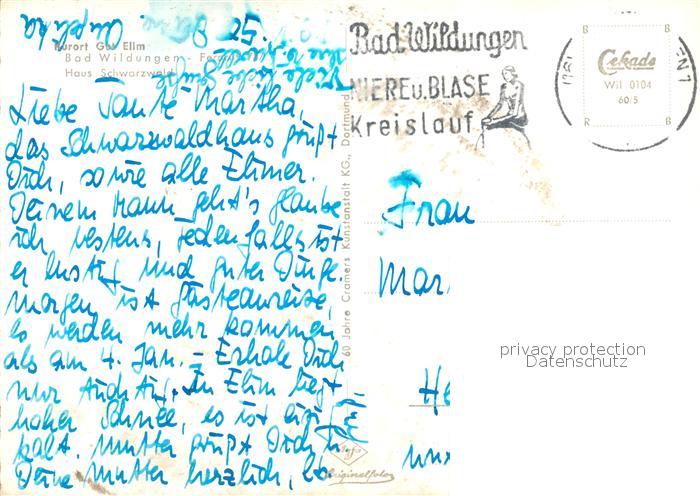 Kurort Gut Elim
Bad Wildungen -
Haus Schwarzwald
Liebe Tante Martha,
das Schwarzwaldhaus grüßt
Dich, sowie alle Elimer.
Deinem Mann geht's glaube
ich, bestens, jedenfalls ist
er lustig und guter Dinge.
Morgen ist Gästeanreise,
es werden mehr kommen
als am 4. Jan. – Erhole Dich
nur tüchtig. In Elim liegt
hoher Schnee, es ist
kalt. Mutter grüßt Dich u.
Deine Mutter herzlich,
Viele liebe Grüße
Angelika
60 Jahre Cramers Kunstanstalt KG., Dortmund
Agfa
Originalfoto
Bad Wildungen
NIERE u. BLASE
Kreislauf
B B
Cekade
Wil 0104
60/5
R R
Frau
Mar
privacy protection
Datenschutz
He